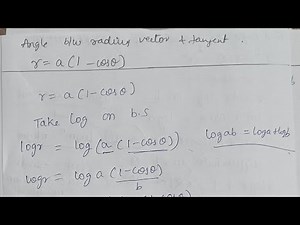 Angle b/w radius vector & tangent.
r = a(1-cosθ)
r = a(1-cosθ)
Take log on b.s
logr = log(a(1-cosθ))
log ab = loga+logb
logr = log a (1-cosθ)
b